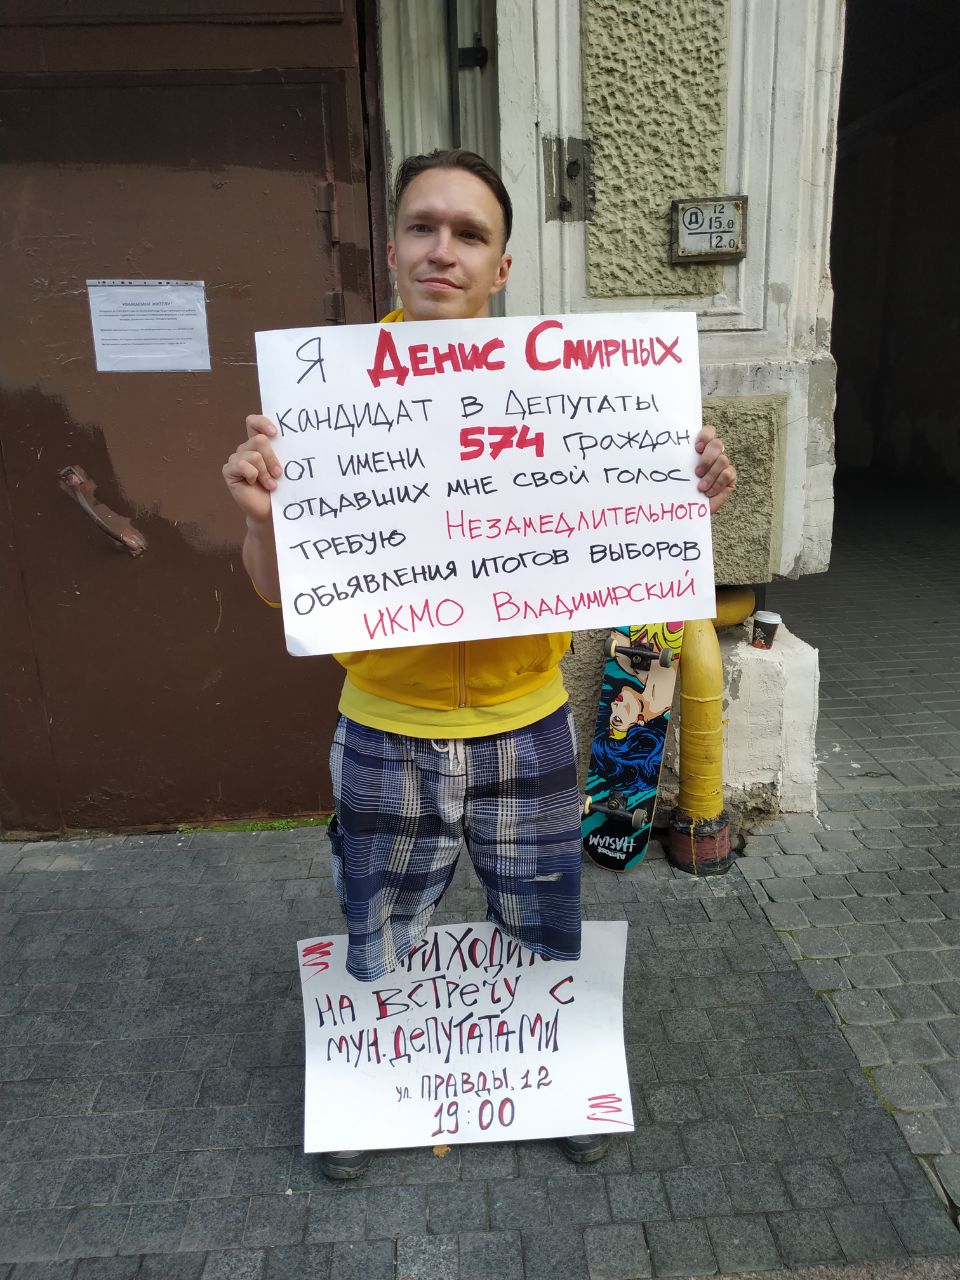 УВАЖАЕМЫЕ ЖИТЕЛИ!
Д 12
15.0
12.0
Я Денис Смирных
кандидат в депутаты
от имени 574 граждан
отдавших мне свой голос
требую Незамедлительного
обьявления итогов выборов
ИКМО Владимирский
ALMOST
HASLAM
на встречу с
мун. депутатами
ул. Правды, 12
19:00